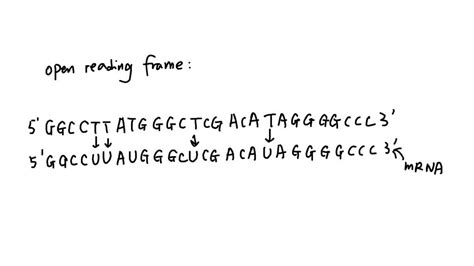 open reading frame:
5' GGCCTTATGGGCTCGACATAGGGGCCC 3'
5' GGCCUUAUGGGCUCGACAUAGGGGCCC 3'
mRNA